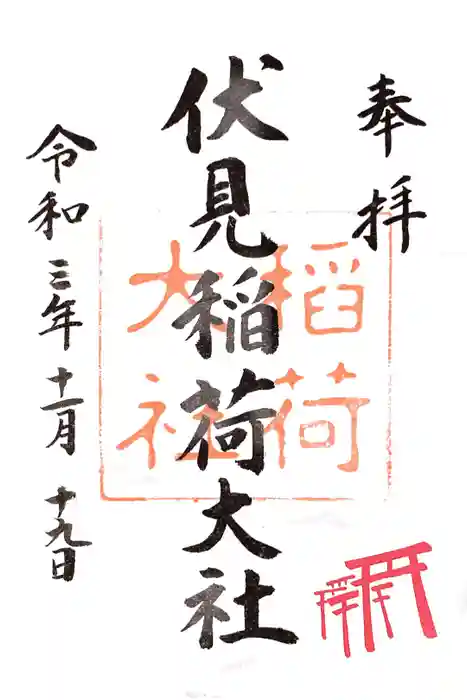 奉拝
伏見稲荷大社
令和三年十一月十九日
稲荷
大社